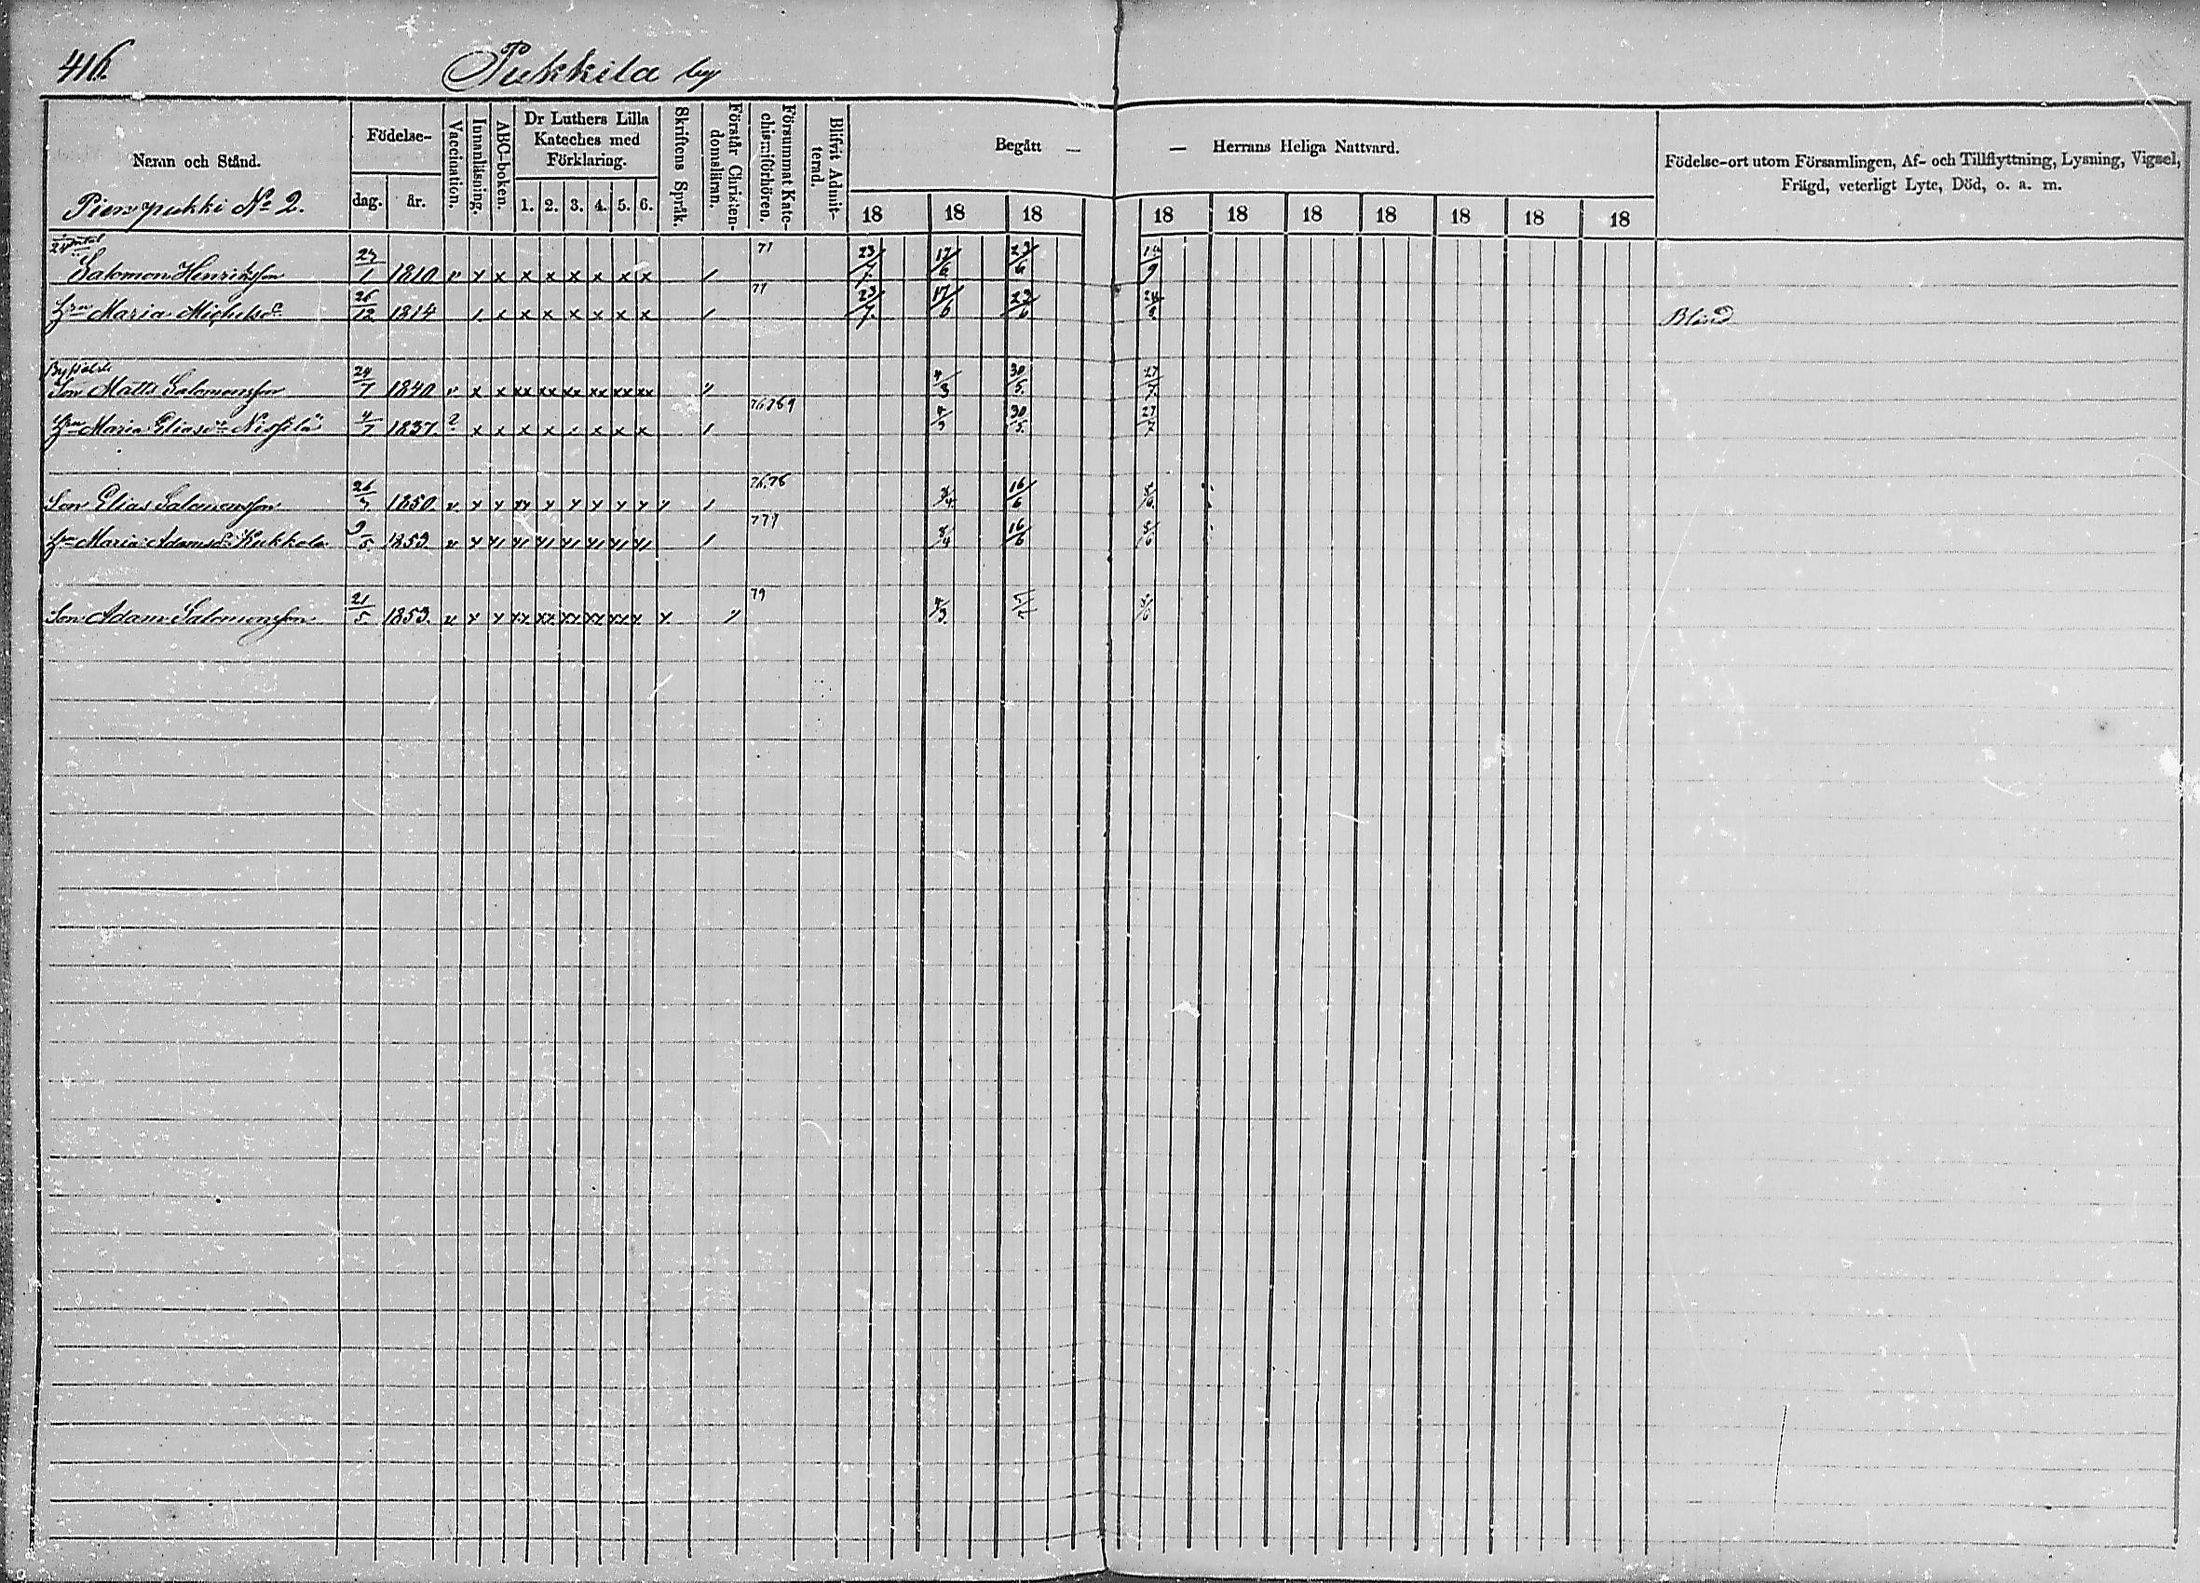 416.
Pukkila by
Namn och Stånd.
Födelse-
dag.
år.
Vaccination.
Innanläsning.
ABC-boken.
Dr Luthers Lilla
Kateches med
Förklaring.
1. 2. 3. 4. 5. 6.
Skriftens Språk.
Förstår Christen-
domsläran.
Försummat Kate-
chismiförhören.
Blifvit Admit-
terad.
Begått —
— Herrans Heliga Nattvard.
18 18 18 18 18 18 18 18 18 18
Födelse-ort utom Församlingen, Af- och Tillflyttning, Lysning, Vigsel,
Frägd, veterligt Lyte, Död, o. a. m.
Pienipukki No 2.
Salomon Henriksson 23/1 1810 v x x x x x x x x 71 23/7. 17/6 29/6 14/9
Hru Maria Michelsd. 26/12 1814 x x x x x x x 71 23/7. 17/6 29/6 Blind
Son Matts Salomonsson 24/7 1840 v x x xx xx xx xx xx xx 4/3 30/5. 27/7.
Hru Maria Eliasd. 4/7 1837. ? x x x x x x x 4/3 30/5. 27/7
Son Elias Salomonsson 1850 76,78 16/6
Hru Maria Adamsd. Kukkola 9/5. 1853 779 16/6
Son Adam Salomonsson 21/5 1853. 79 4/3.